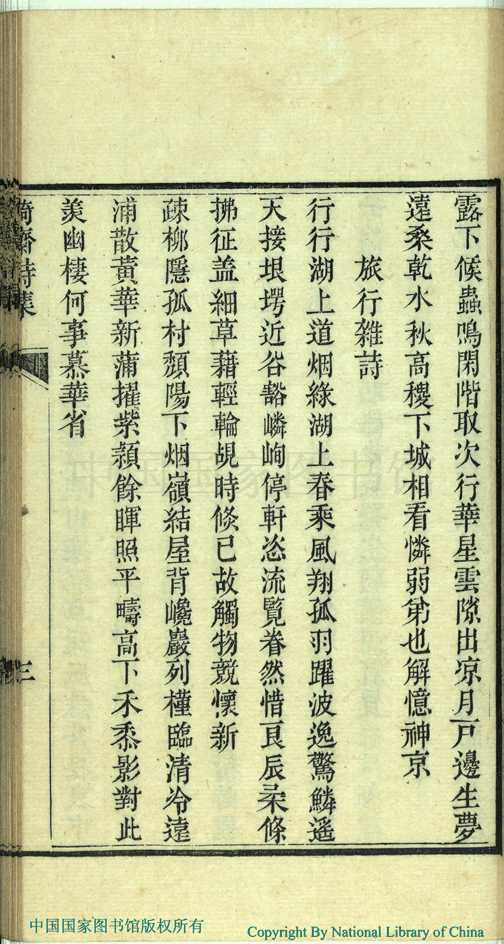 露下候蟲鳴閑階取次行華星雲隙出凉月戸邊生夢
遠桑乾水秋高稷下城相看憐弱弟也解憶神京
旅行雜詩
行行湖上道烟綠湖上春乘風翔孤羽躍波逸驚鱗遥
天接垠堮近谷豁嶙峋停軒恣流覽眷然惜良辰柔條
拂征盖細草藉輕輪覩時倐已故觸物競懷新
疎柳隱孤村頽陽下烟嶺結屋背巉巖列橦臨清泠遠
浦散黃華新蒲擢紫潁餘暉照平疇高下禾黍影對此
羨幽棲何事慕華省
詩集
三
中国国家图书馆
中国国家图书馆版权所有
Copyright By National Library of China